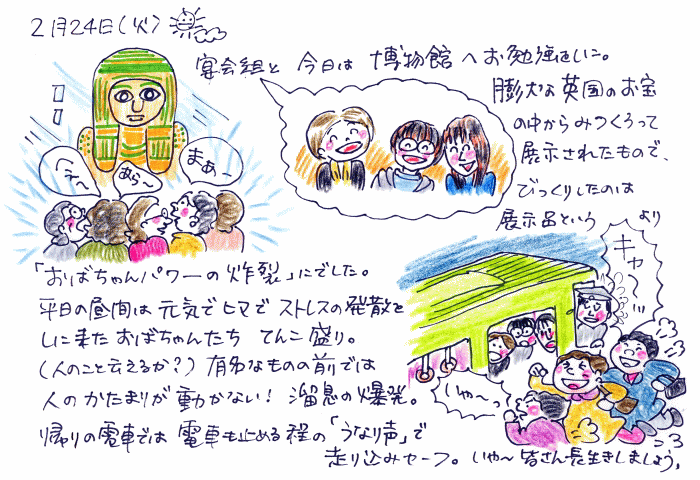 2月24日(火)
宴会組と 今日は 博物館 へお勉強をしに。
膨大な 英国のお宝
の中からみつくろって
展示されたもので、
びっくりしたのは
展示品という より
へぇ〜
あら〜
まぁー
「おばちゃんパワーの炸裂」にでした。
平日の昼間は 元気でヒマで ストレスの発散を
しに来た おばちゃんたち てんこ盛り。
(人のこと云えるか?) 有名なものの前では
人のかたまりが 動かない! 溜息の爆発。
帰りの電車では 電車も止める 程の「うなり声」で
走り込みセーフ。 いゃ〜 皆さん長生きしましょう。
キャ〜!!!
いゃ〜っ